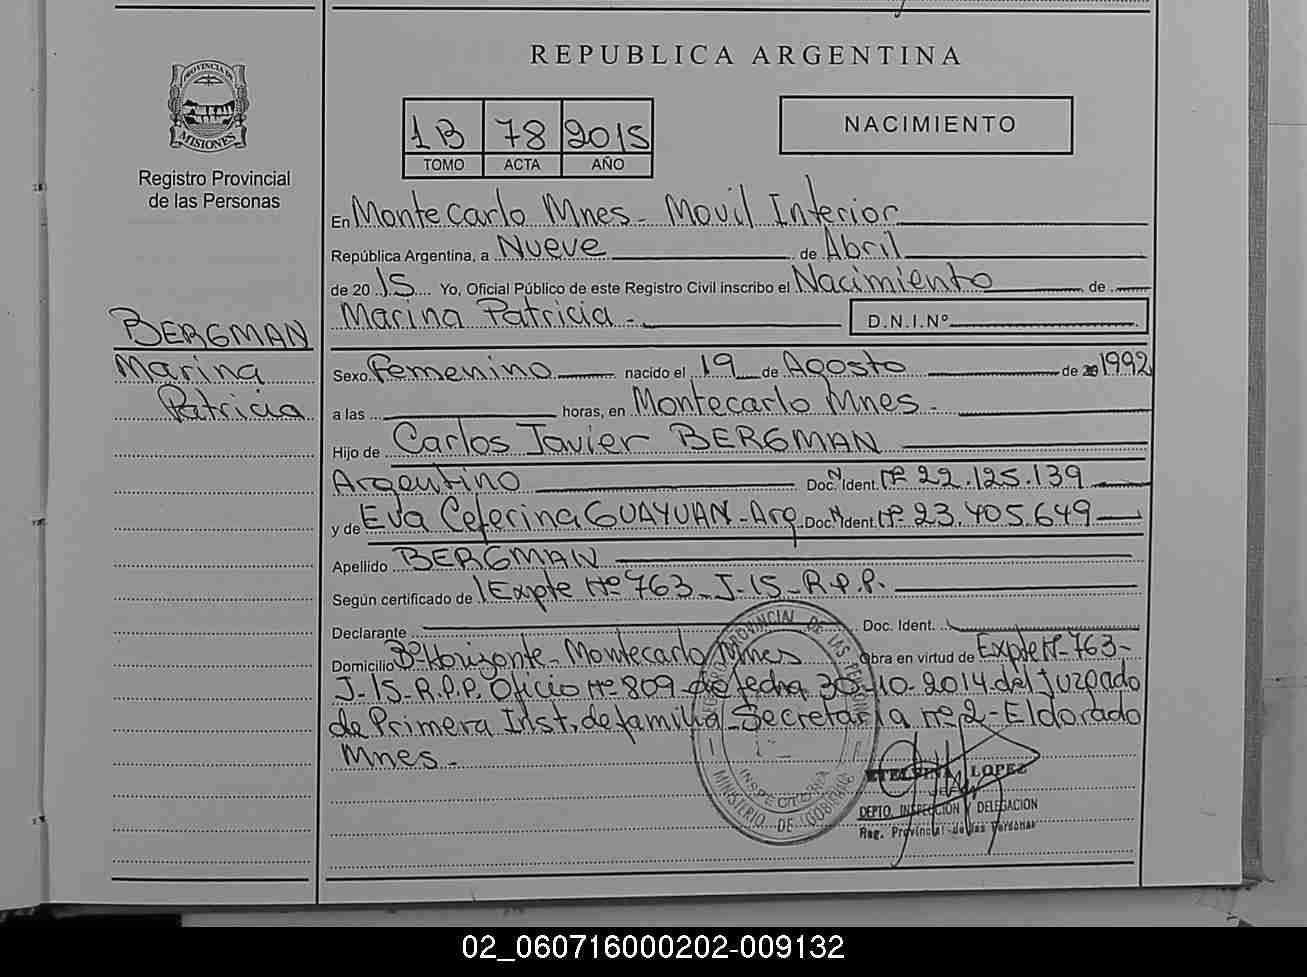 REPUBLICA ARGENTINA
PROVINCIA DE
MISIONES
Registro Provincial
de las Personas
1B 78 2015
TOMO ACTA AÑO
NACIMIENTO
En Montecarlo Mnes - Movil Interior
República Argentina, a Nueve de Abril
de 2015 Yo, Oficial Público de este Registro Civil inscribo el Nacimiento de
Marina Patricia - D.N.I.Nº
BERGMAN
Marina
Patricia
Sexo Femenino nacido el 19 de Agosto de 1992
a las horas, en Montecarlo Mnes -
Hijo de Carlos Javier BERGMAN
Argentino Doc. N Ident. Nº 22.125.139
y de Eva Ceferina GUAYUAN - Arg. Doc. N Ident. Nº 23.405.649
Apellido BERGMAN
Según certificado de Expte Nº 763 - J-15 - R.P.P.
Declarante Doc. Ident.
Domicilio Bº Horizonte - Montecarlo Mnes Obra en virtud de Expte Nº 763-
J-15-R.P.P. Oficio Nº 809 de fecha 30-10-2014 del Juzgado
de Primera Inst. de familia - Secretaria nº 2 - Eldorado
Mnes -
REGISTRO PROVINCIAL DE LAS PERSONAS
INSPECTORIA
MINISTERIO DE GOBIERNO
ETELVINA LOPEZ
DEPTO. INSPECCION Y DELEGACION
Reg. Provincial de las Personas
02_060716000202-009132